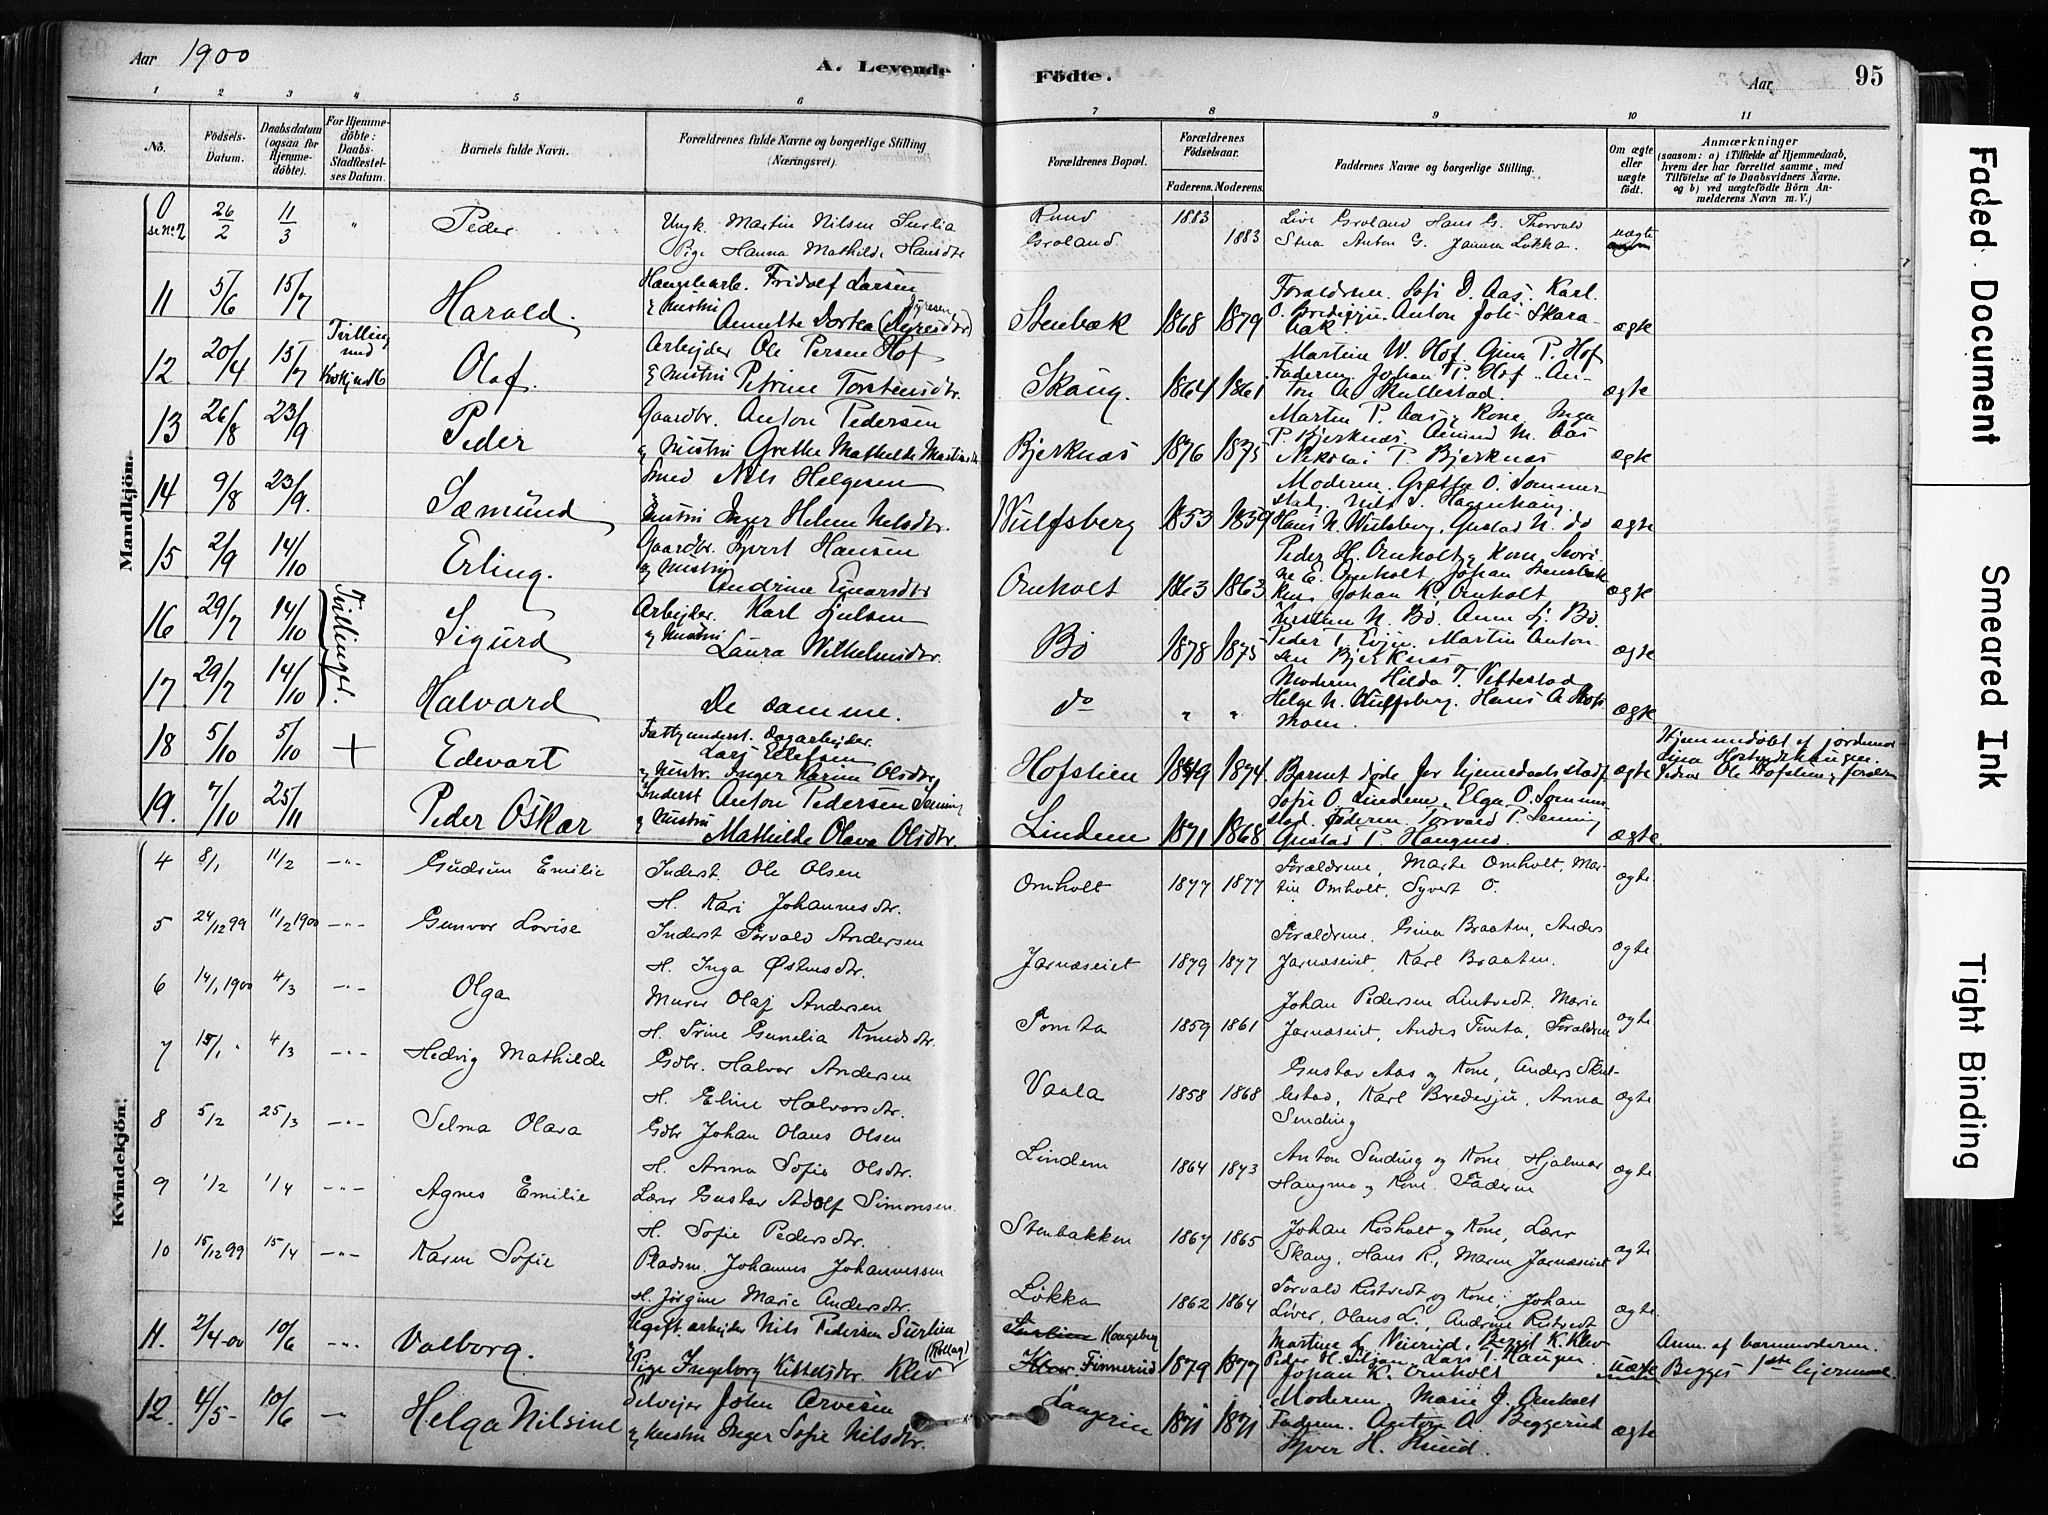 Aar 1900
A. Levende
Födte.
Aar
95
1 2 3 4 5 6 7 8 9 10 11
No.
Födsels-
Datum.
Daabsdatum
(ogsaa for
Hjemme-
döbte).
For Hjemme-
döbte:
Daabs-
Stadfæstel-
ses Datum.
Barnets fulde Navn.
Forældrenes fulde Navne og borgerlige Stilling
(Næringsvei).
Forældrenes Bopæl.
Forældrenes
Födselsaar.
Faderens. Moderens.
Faddernes Navne og borgerlige Stilling.
Om ægte
eller
uægte
født.
Anmærkninger
(saasom: a) i Tilfælde af Hjemmedaab,
hvem der har forrettet samme, med
Tilföielse af to Daabsvidners Navne,
og b) ved uægtefödte Börn An-
melderens Navn m. V.)
Mandkjön.
26/2 11/3 " Peder
Ungk. Martin Nilsen Surlia
Pige Hanna Mathilde Hansdtr
Ruud 1883
Groland 1883
Live Groland Hans G. Thorvald
Anton G. Løkka. uægte
11 5/6 15/7 Harald.
Fridolf Larsen
& Hustru Annette Dortea
Stenbæk 1868 1879
Forældrene. Sofi D. Aas. Karl
O. Anton Joh. Skara-
bak. ægte
12 20/4 15/7 Tvilling
med
Olof.
Arbejder Ole Persen Hof
& Hustru Petrine Torstensdtr.
Skaug. 1864 1861
Martine W. Hof. Gina P. Hof
Faderen. Johan P. Hof. An-
ton A. Skullestad. ægte
13 26/8 23/9 Peder
Gaardbr. Anton Pedersen
& Hustru Grethe Mathilde
Bjerknæs 1876 1875
Martin P. Aas & Kone, Inga
P. Bjerknæs. Amund M. Aas
Nikolai P. Bjerknæs ægte
14 9/8 23/9. Sæmund
Smed Nils Helgesen
& Hustru Inger Helene Nilsdtr.
Wulfsberg 1853 1859
Moderen. Grethe O. Sommer-
stad, Nils S.
Hans N. Wulfsberg, Gustad N. do ægte
15 2/9 14/10 Erling.
Gaardbr. Syvert Hansen
& Hustru Andrine Ejnarsdtr
Omholt 1863 1863
Peder H. Omholt & Kone, Severi-
ne E. Omholt Johan
Johan K. Omholt ægte
16 29/7 14/10 Tvillinger. Sigurd
Arbejder. Karl Julsen
& Hustru Laura Wilhelmsdtr.
Bö 1878 1875
Kristen N. Bö. Anne J. Bö.
Peder T. Evju. Martin Anton-
sen Bjerknæs ægte
17 29/7 14/10 Halvard
De samme.
do " "
Moderen Hilda T. Vettestad
Helge N. Wulfsberg. Hans A.
moen. ægte
18 5/10 5/10 + Edevart
Fattigunderst. Dagarbejder.
Lars Ellefsen
& Hustr. Inger Karine Olsdtr
Hofslien 1849 1874
Barnet døde før hjemmedaabs stadf. ægte
Hjemmedøbt af jordemor
Vidner Ole Hofslien & forældrene
19. 7/10 25/11 Peder Oskar
Inderst Anton Pedersen Senning
& Hustru Mathilde Olava Olsdtr.
Lindem 1871 1868
Sofie O. Lindem, Elga O. Sommer-
stad. Faderen. Torvald P. Senning
Gustad P. Haugmo. ægte
Kvindekjön.
4 8/1 11/2 -"- Gudrun Emilie
Inderst. Ole Olsen
H. Kari Johannesdtr.
Omholt 1877 1877
Forældrene, Marte Omholt, Mar-
tin Omholt, Syvert O. ægte
5 24/12 99 11/2 1900 -"- Gunvor Lovise
Inderst Torvald Andersen
H. Inga Østensdtr.
Jarnæseiet 1879 1877
Forældrene, Gina Braaten, Anders
Jarnæseiet, Karl Braaten. ægte
6 14/1 1900 4/3 -"- Olga
Murer Olaf Andersen
H. Trine Gunelia Knudsdtr.
Tomta 1859 1861
Johan Pedersen Lintvedt. Marie
Jarnæseiet, Anders Tomta, Forældrene ægte
7 15/1 4/3 -"- Hedvig Mathilde
Gdbr. Halvor Andersen
H. Eline Halvorsdtr.
Vaala 1858 1868
Gustav Aas og Kone, Anders Skul-
lestad, Karl Bredesju, Anna
Sending ægte
8 5/2 25/3 -"- Selma Olava
Gdbr Johan Olaus Olsen
H. Anna Sofie Olsdtr.
Lindem 1864 1873
Anton Sending og Kone, Hjalmar
Haugmo og Kone. Faderen ægte
9 1/2 1/4 -"- Agnes Emilie
Lærer Gustav Adolf Simonsen.
H. Sofie Pedersdtr.
Stenbakken 1867 1865
Johan Rosholt og Kone, Lærer
Skaug, Hans R., Maren Jarnæseiet ægte
10 15/12 99 15/4 -"- Karen Sofie
Pladsm. Johannes Johannessen
H. Jørgine Marie Andersdtr.
Løkka 1862 1864
Torvald Ristvedt og Kone, Johan
Liver, Olaus L., Andrine Ristvedt ægte
11. 2/4-00 10/6 -"- Valborg.
Ugift arbejder Nils Pedersen Surlien
& Pige Ingeborg Kittelsdtr. Klev (Rollag)
Surlien Kongsberg
Finnerud 1879 1877
Martine L. Veierud, Bergit K. Klev
Peder H. Lars T. Haugen
Johan K. Omholt uægte
Anm. af barnemoderen.
Begges 1ste lejermaal
12. 4/5- 10/6 -"- Helga Nilsine
Selvejer John Arvesen
& Hustru Inger Sofie Nilsdtr.
Langerin 1871 1871
Moderen, Marie J. Omholt
Faderen. Anton A. Beggerud
H. Ruud. ægte
Faded Document
Smeared Ink
Tight Binding